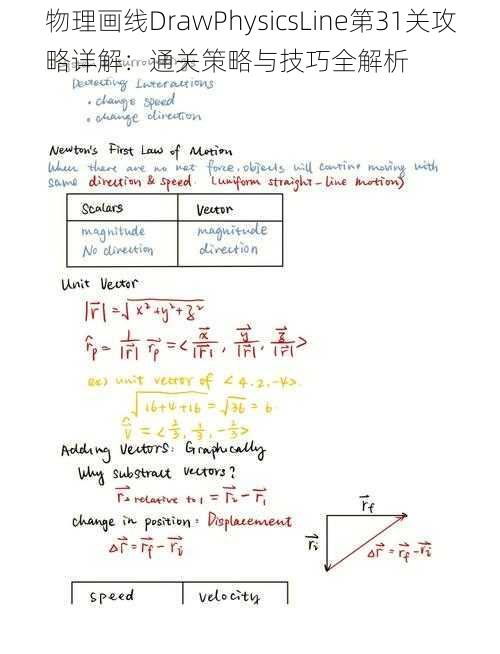 物理画线DrawPhysicsLine第31关攻
略详解：通关策略与技巧全解析
Detecting Interactions
• change speed
• change direction
Newton's First Law of Motion
When there are no net force, objects will continue moving with
same direction & speed. (uniform straight-line motion)
Scalars Vector
magnitude magnitude
No direction direction
Unit Vector
|r⃗| = √x²+y²+z²
r̂p = 1/|r⃗| r⃗p = <x⃗/|r⃗|, y⃗/|r⃗|, z⃗/|r⃗|>
ex) unit vector of <4.2,-4>.
√16+4+16 = √36 = 6.
v̂ = <2/3, 1/3, -2/3>
Adding Vectors: Graphically
Why substract vectors?
r⃗2 relative to 1 = r⃗2 - r⃗1
change in position = Displacement
Δr⃗ = r⃗f - r⃗i
r⃗f
r⃗i
Δr⃗ = r⃗f - r⃗i
speed velocity